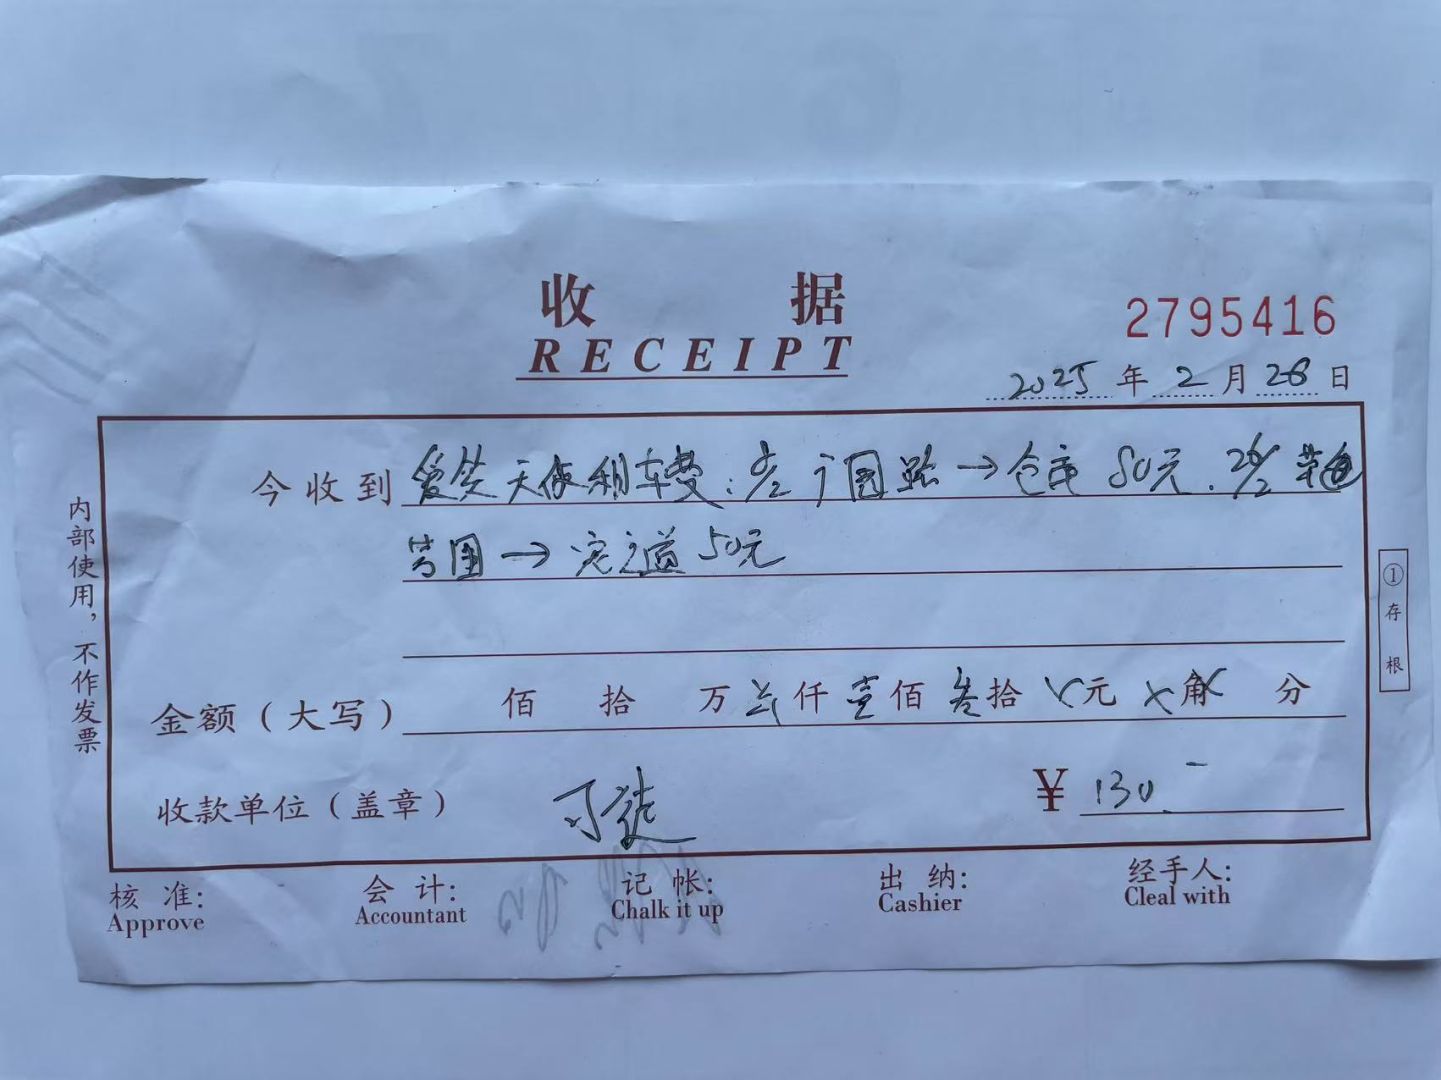 收 据
RECEIPT
2795416
2025 年 2 月 28 日
今收到 爱笑天使租车费: 园 → 仓库 80元. 26/2
芳园 → 50元
金额（大写） 佰 拾 万 仟 壹 佰 叁 拾 元 角 分
收款单位（盖章）
¥ 130
内部使用，不作发票
① 存根
核 准: 会 计: 记 帐: 出 纳: 经手人:
Approve Accountant Chalk it up Cashier Cleal with